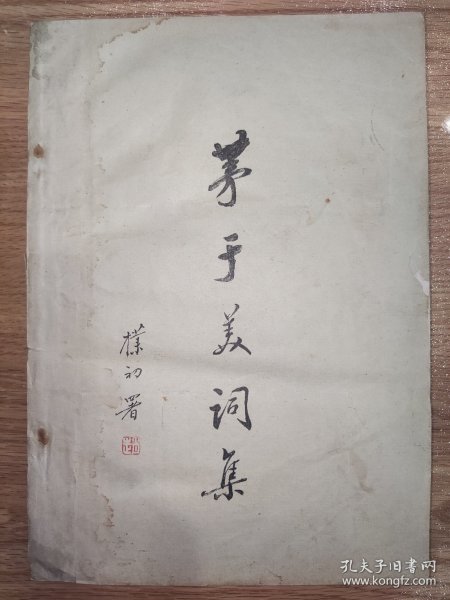 茅于美词集
樸初署
孔夫子旧书网
www.kongfz.com